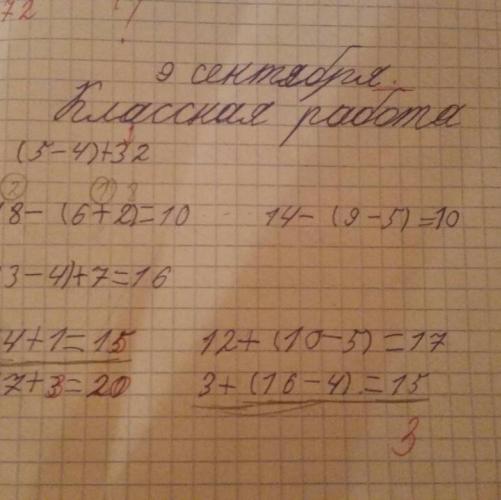 72
9 сентября.
Классная работа
(5-4)+32
② ①
18-(6+2)=10 14-(9-5)=10
(3-4)+7=16
4+1=15 12+(10-5)=17
7+3=20 3+(16-4)=15
3